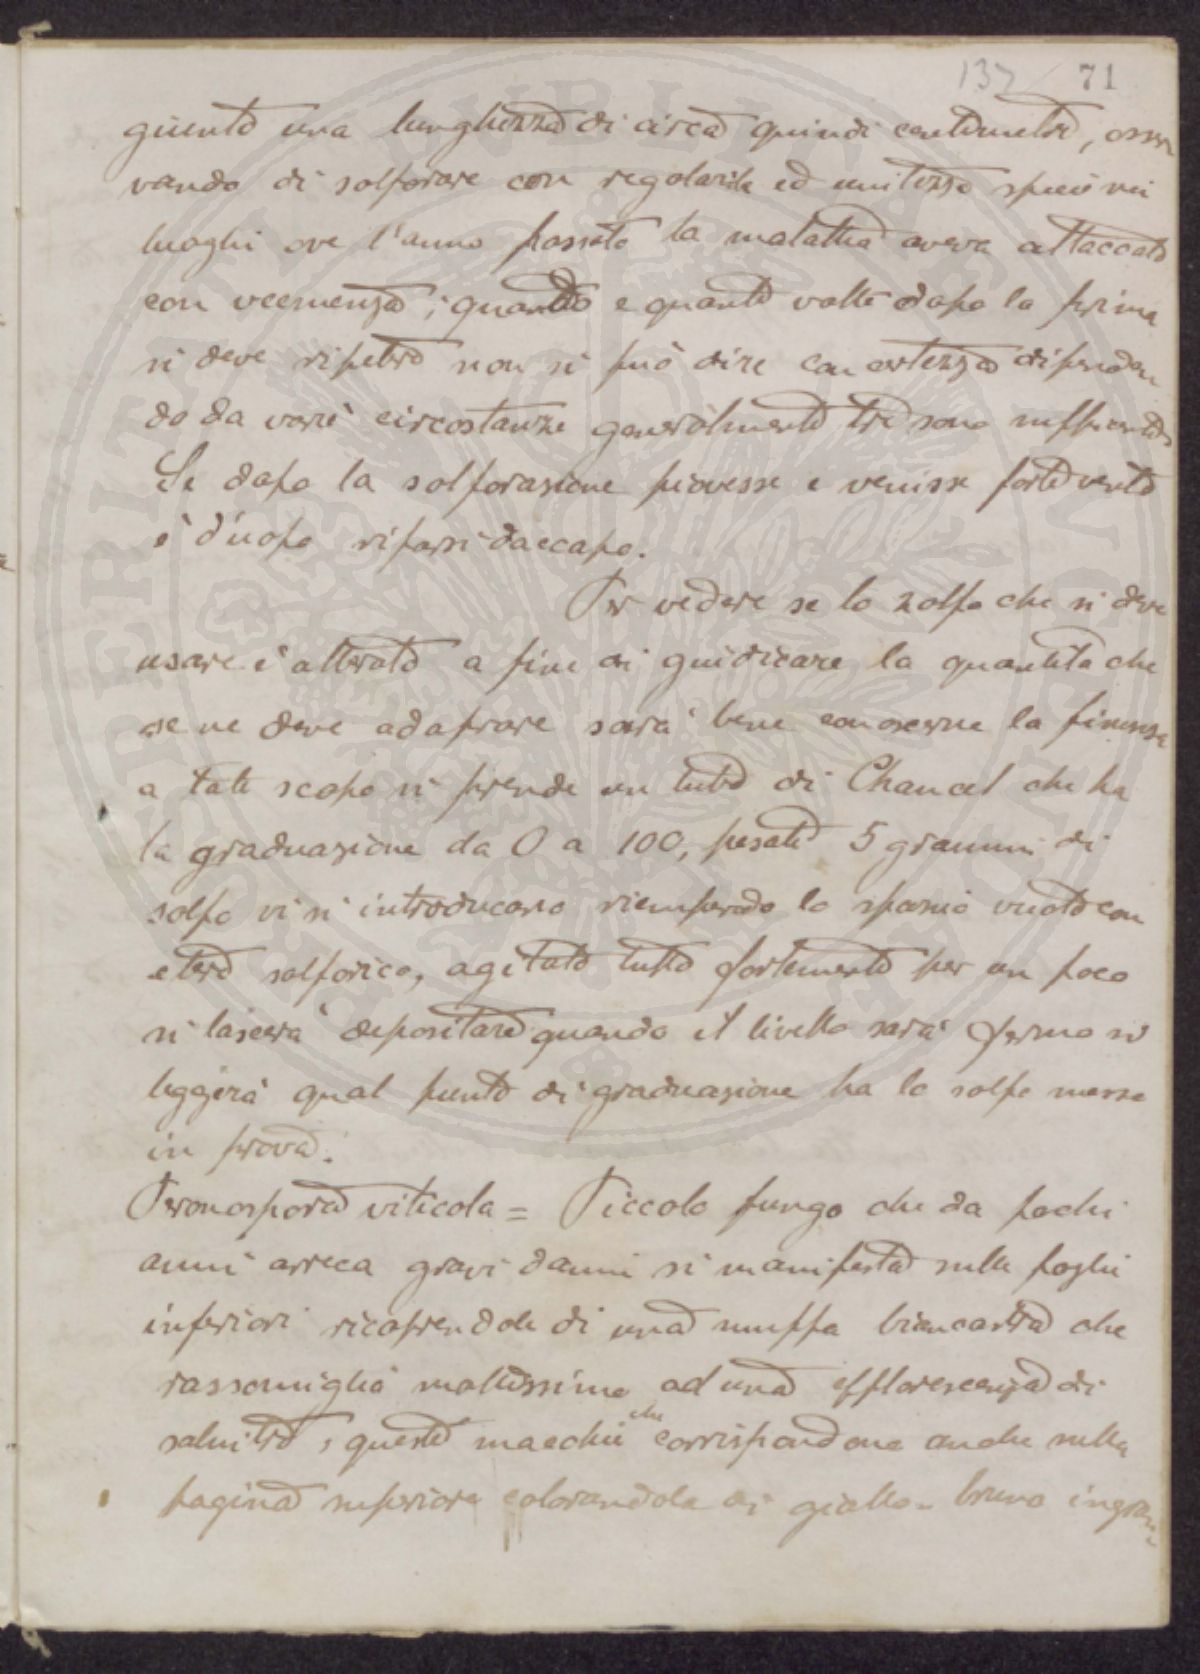 137 71
giunto una lunghezza di circa quindi centimetri, osser
vando di solforare con regolarità ed unitezza specie nei
luoghi ove l'anno passato la malattia aveva attaccato
con veemenza; quando e quante volte dopo la prima
si deve ripetere non si può dire con certezza dipenden
do da varie circostanze generalmente tre sono sufficienti
Se dopo la solforazione piovesse e venisse forte vento
è d'uopo rifarsi daccapo.
Per vedere se lo zolfo che si deve
usare è alterato a fine di guidicare la quantità che
se ne deve adaprare sarà bene conoscerne la finezza
a tale scopo si prende un tubo di Chancel che ha
la graduazione da 0 a 100, pesato 5 grammi di
solfo vi si introducono riempendo lo spazio vuoto con
etere solforico, agitato tutto fortemente per un poco
si lascerà depositare quando il livello sarà fermo si
leggerà qual punto di graduazione ha lo solfo messo
in prova.
Peronospora viticola = Piccolo fungo che da pochi
anni arreca gravi danni si manifesta sulle foglie
inferiori ricoprendole di una muffa biancastra che
rassomiglia moltissimo ad una efflorescenza di
salnitro, queste macchie che corrispondono anche sulla
pagina superiore colorandola di giallo-bruno ingran